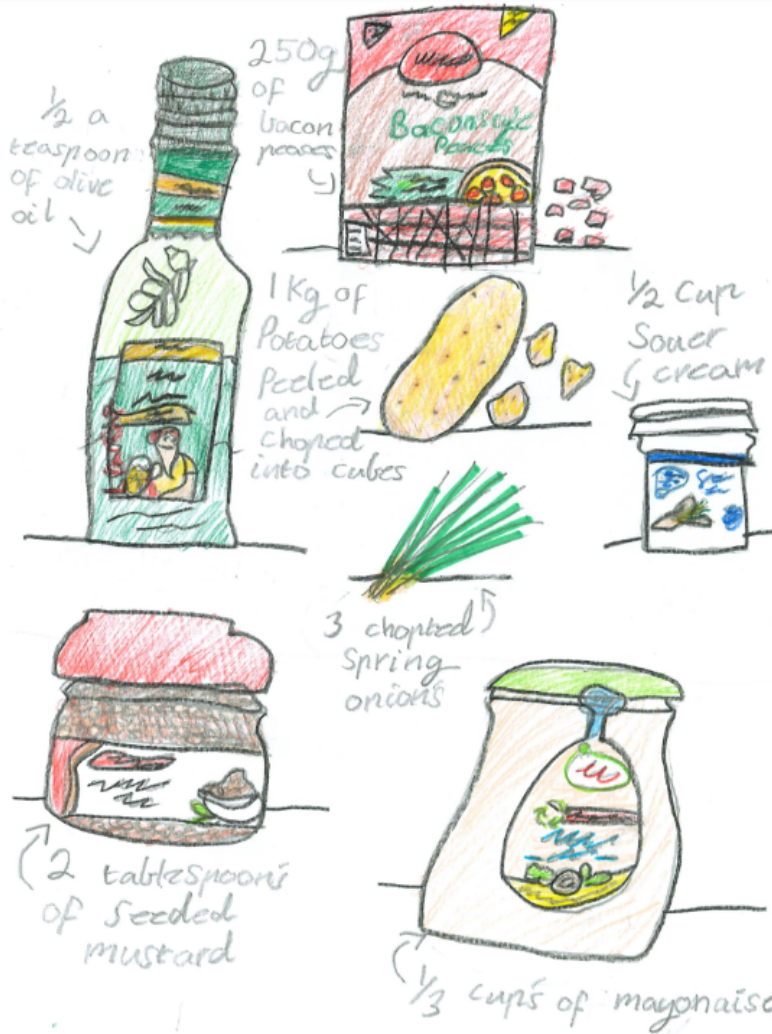 ½ a
teaspoon
of olive
oil
250g
of
bacon
peases
Bacon
1 Kg of
Potatoes
Peeled
and
choped
into cubes
½ Cup
Souer
cream
3 chopted
Spring
onions
2 tablespoons
of Seeded
mustard
⅓ cups of mayonaise